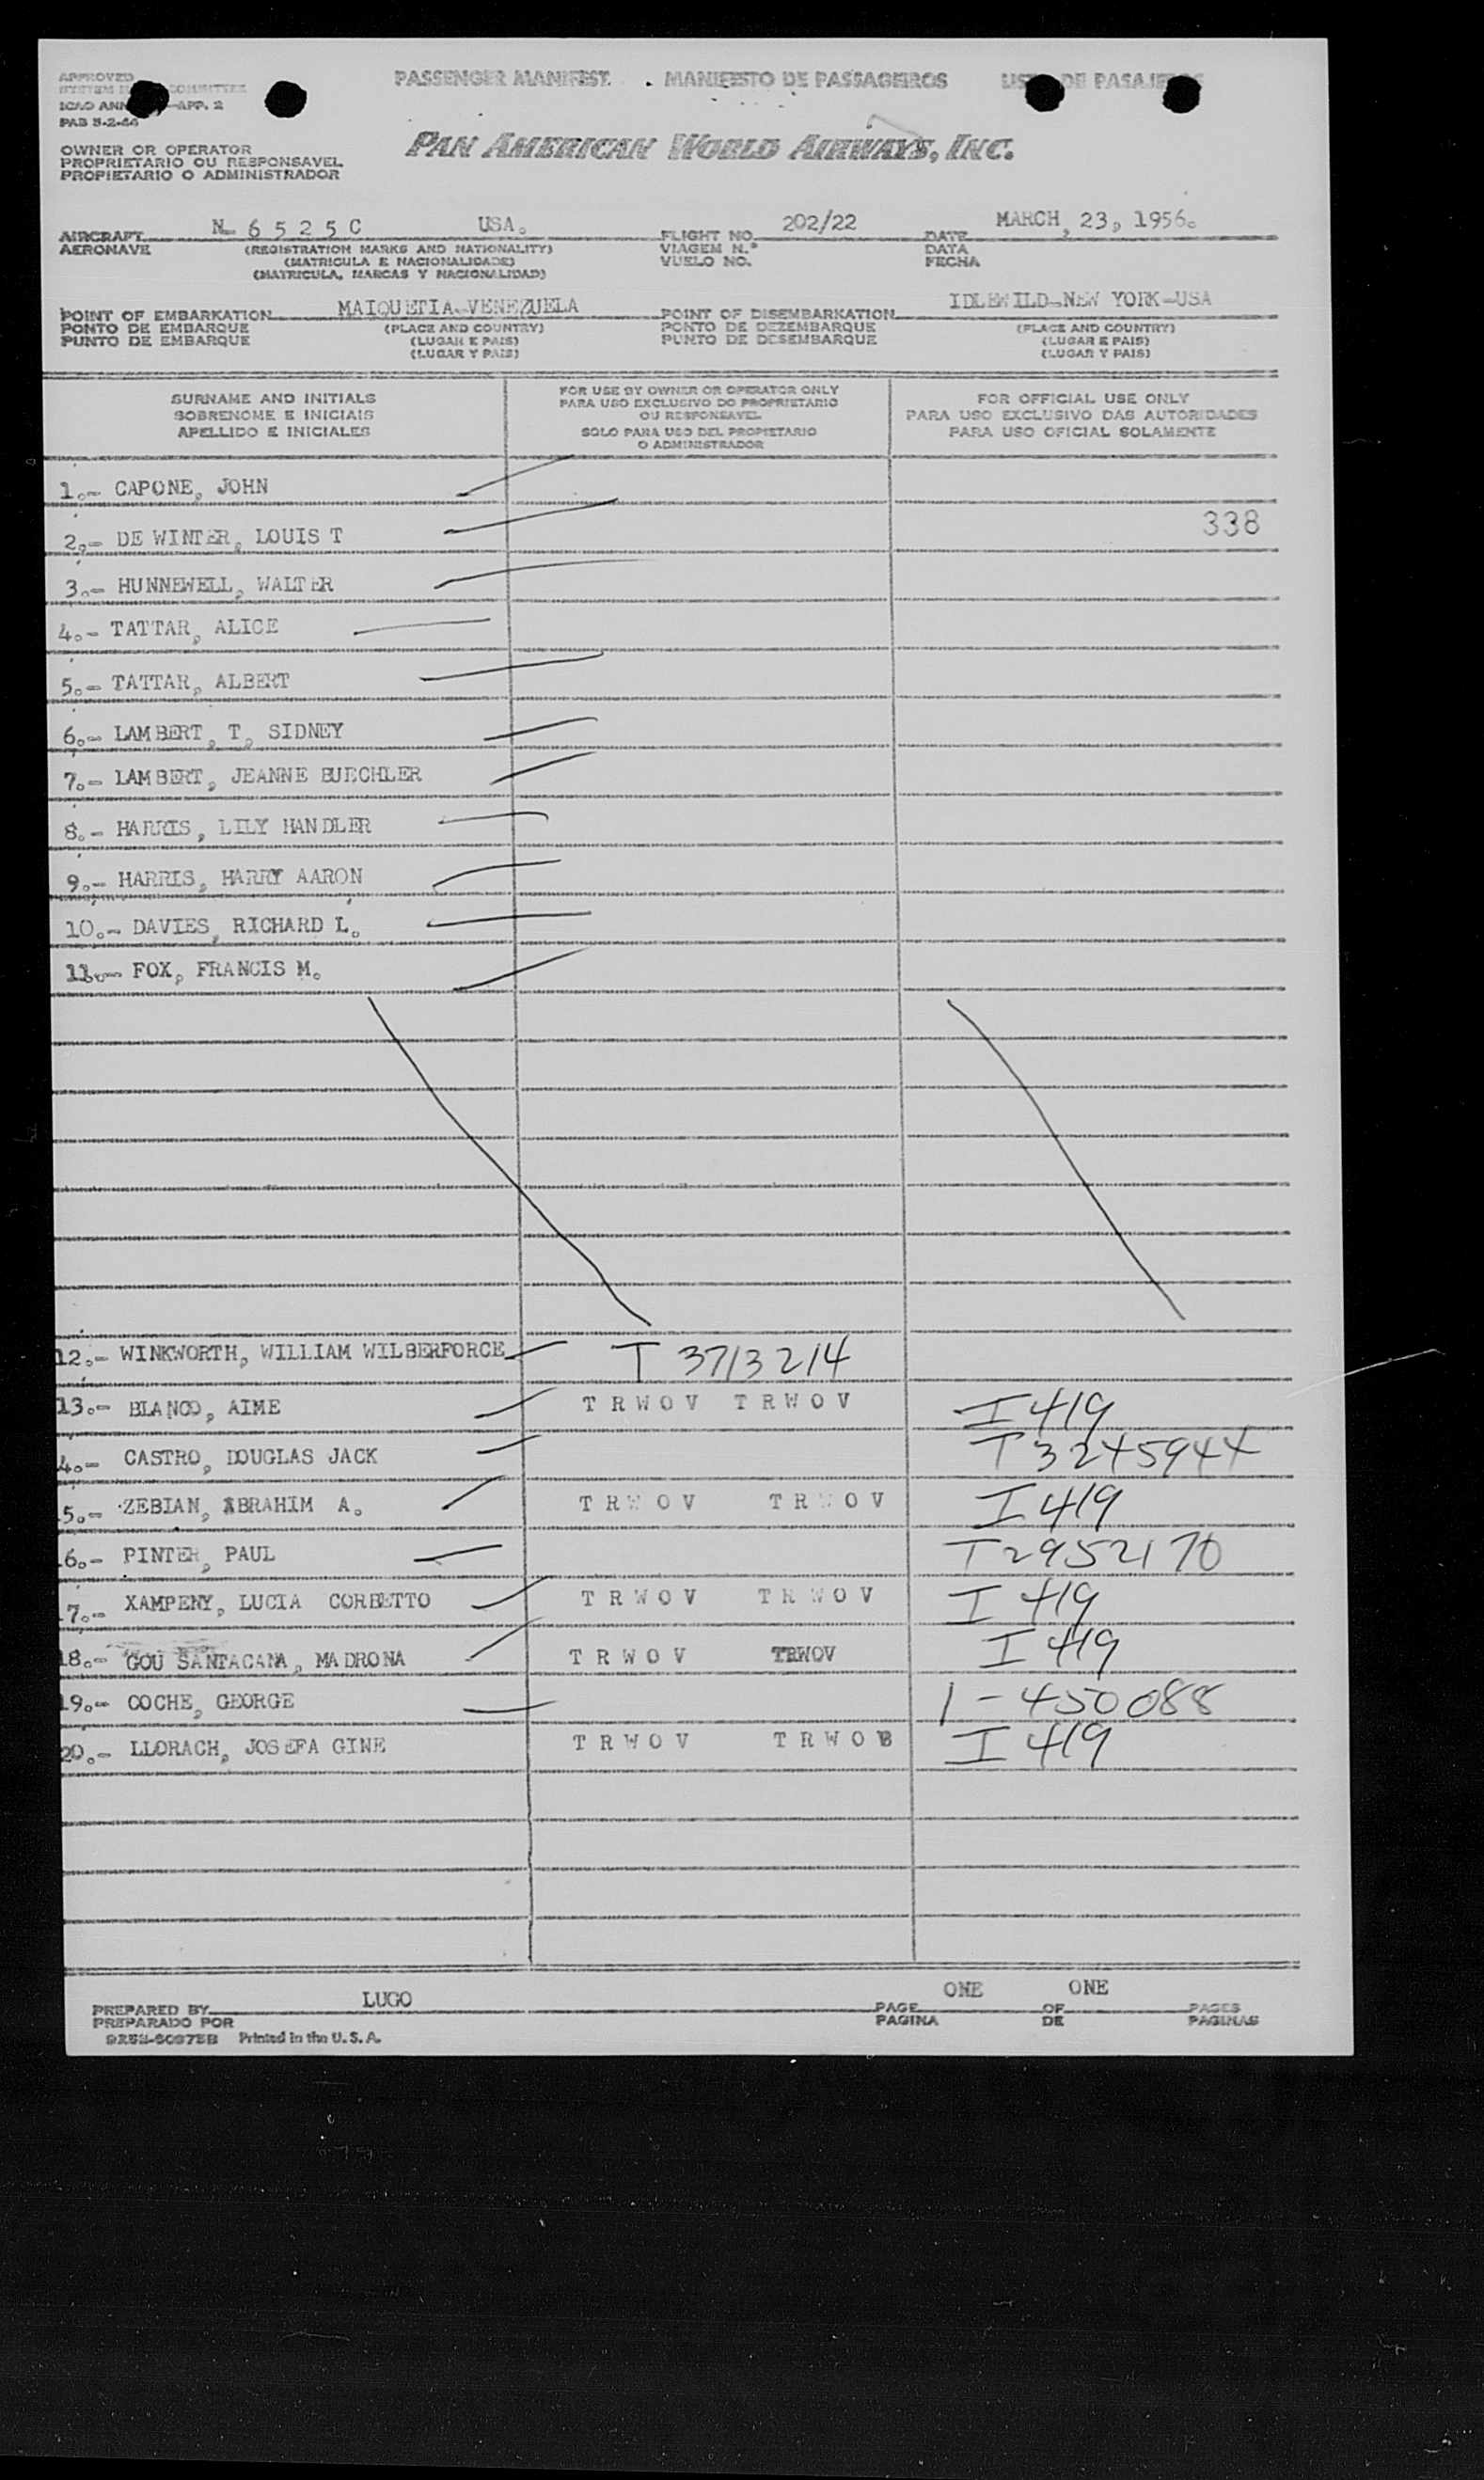 APPROVED
SYSTEM COMMITTEE
ICAO ANN APP. 2
PAB 5-2-44
PASSENGER MANIFEST. MANIFESTO DE PASSAGEIROS LISTA DE PASAJEROS
OWNER OR OPERATOR
PROPRIETARIO OU RESPONSAVEL
PROPIETARIO O ADMINISTRADOR
PAN AMERICAN WORLD AIRWAYS, INC.
AIRCRAFT N- 6 5 2 5 C USA. FLIGHT NO. 202/22 DATE MARCH, 23, 1956.
AERONAVE (REGISTRATION MARKS AND NATIONALITY) VIAGEM N.º DATA
(MATRICULA E NACIONALIDADE) VUELO NO. FECHA
(MATRICULA, MARCAS Y NACIONALIDAD)
POINT OF EMBARKATION MAIQUETIA-VENEZUELA POINT OF DISEMBARKATION IDLEWILD-NEW YORK-USA
PONTO DE EMBARQUE (PLACE AND COUNTRY) PONTO DE DEZEMBARQUE (PLACE AND COUNTRY)
PUNTO DE EMBARQUE (LUGAR E PAIS) PUNTO DE DESEMBARQUE (LUGAR E PAIS)
(LUGAR Y PAIS) (LUGAR Y PAIS)
SURNAME AND INITIALS
SOBRENOME E INICIAIS
APELLIDO E INICIALES
FOR USE BY OWNER OR OPERATOR ONLY
PARA USO EXCLUSIVO DO PROPRIETARIO
OU RESPONSAVEL
SOLO PARA USO DEL PROPIETARIO
O ADMINISTRADOR
FOR OFFICIAL USE ONLY
PARA USO EXCLUSIVO DAS AUTORIDADES
PARA USO OFICIAL SOLAMENTE
1.- CAPONE, JOHN
2.- DE WINTER, LOUIS T 338
3.- HUNNEWELL, WALTER
4.- TATTAR, ALICE
5.- TATTAR, ALBERT
6.- LAMBERT, T, SIDNEY
7.- LAMBERT, JEANNE BUECHLER
8.- HARRIS, LILY HANDLER
9.- HARRIS, HARRY AARON
10.- DAVIES, RICHARD L.
11.- FOX, FRANCIS M.
12.- WINKWORTH, WILLIAM WILBERFORCE T 3713214
13.- BLANCO, AIME T R W O V T R W O V I 419
4.- CASTRO, DOUGLAS JACK T 3245944
5.- ZEBIAN, ABRAHIM A. T R W O V T R W O V I 419
6.- PINTER, PAUL T2952170
7.- XAMPENY, LUCIA CORBETTO T R W O V T R W O V I 419
18.- GOU SANTACANA, MADRONA T R W O V TRWOV I 419
19.- COCHE, GEORGE 1-450088
20.- LLORACH, JOSEFA GINE T R W O V T R W O B I 419
PREPARED BY LUGO PAGE ONE OF ONE PAGES
PREPARADO POR PAGINA DE PAGINAS
Printed in the U. S. A.